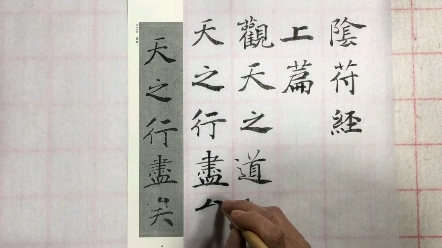 陰符經
上篇
觀天之道
天之行盡
天之行盡矣